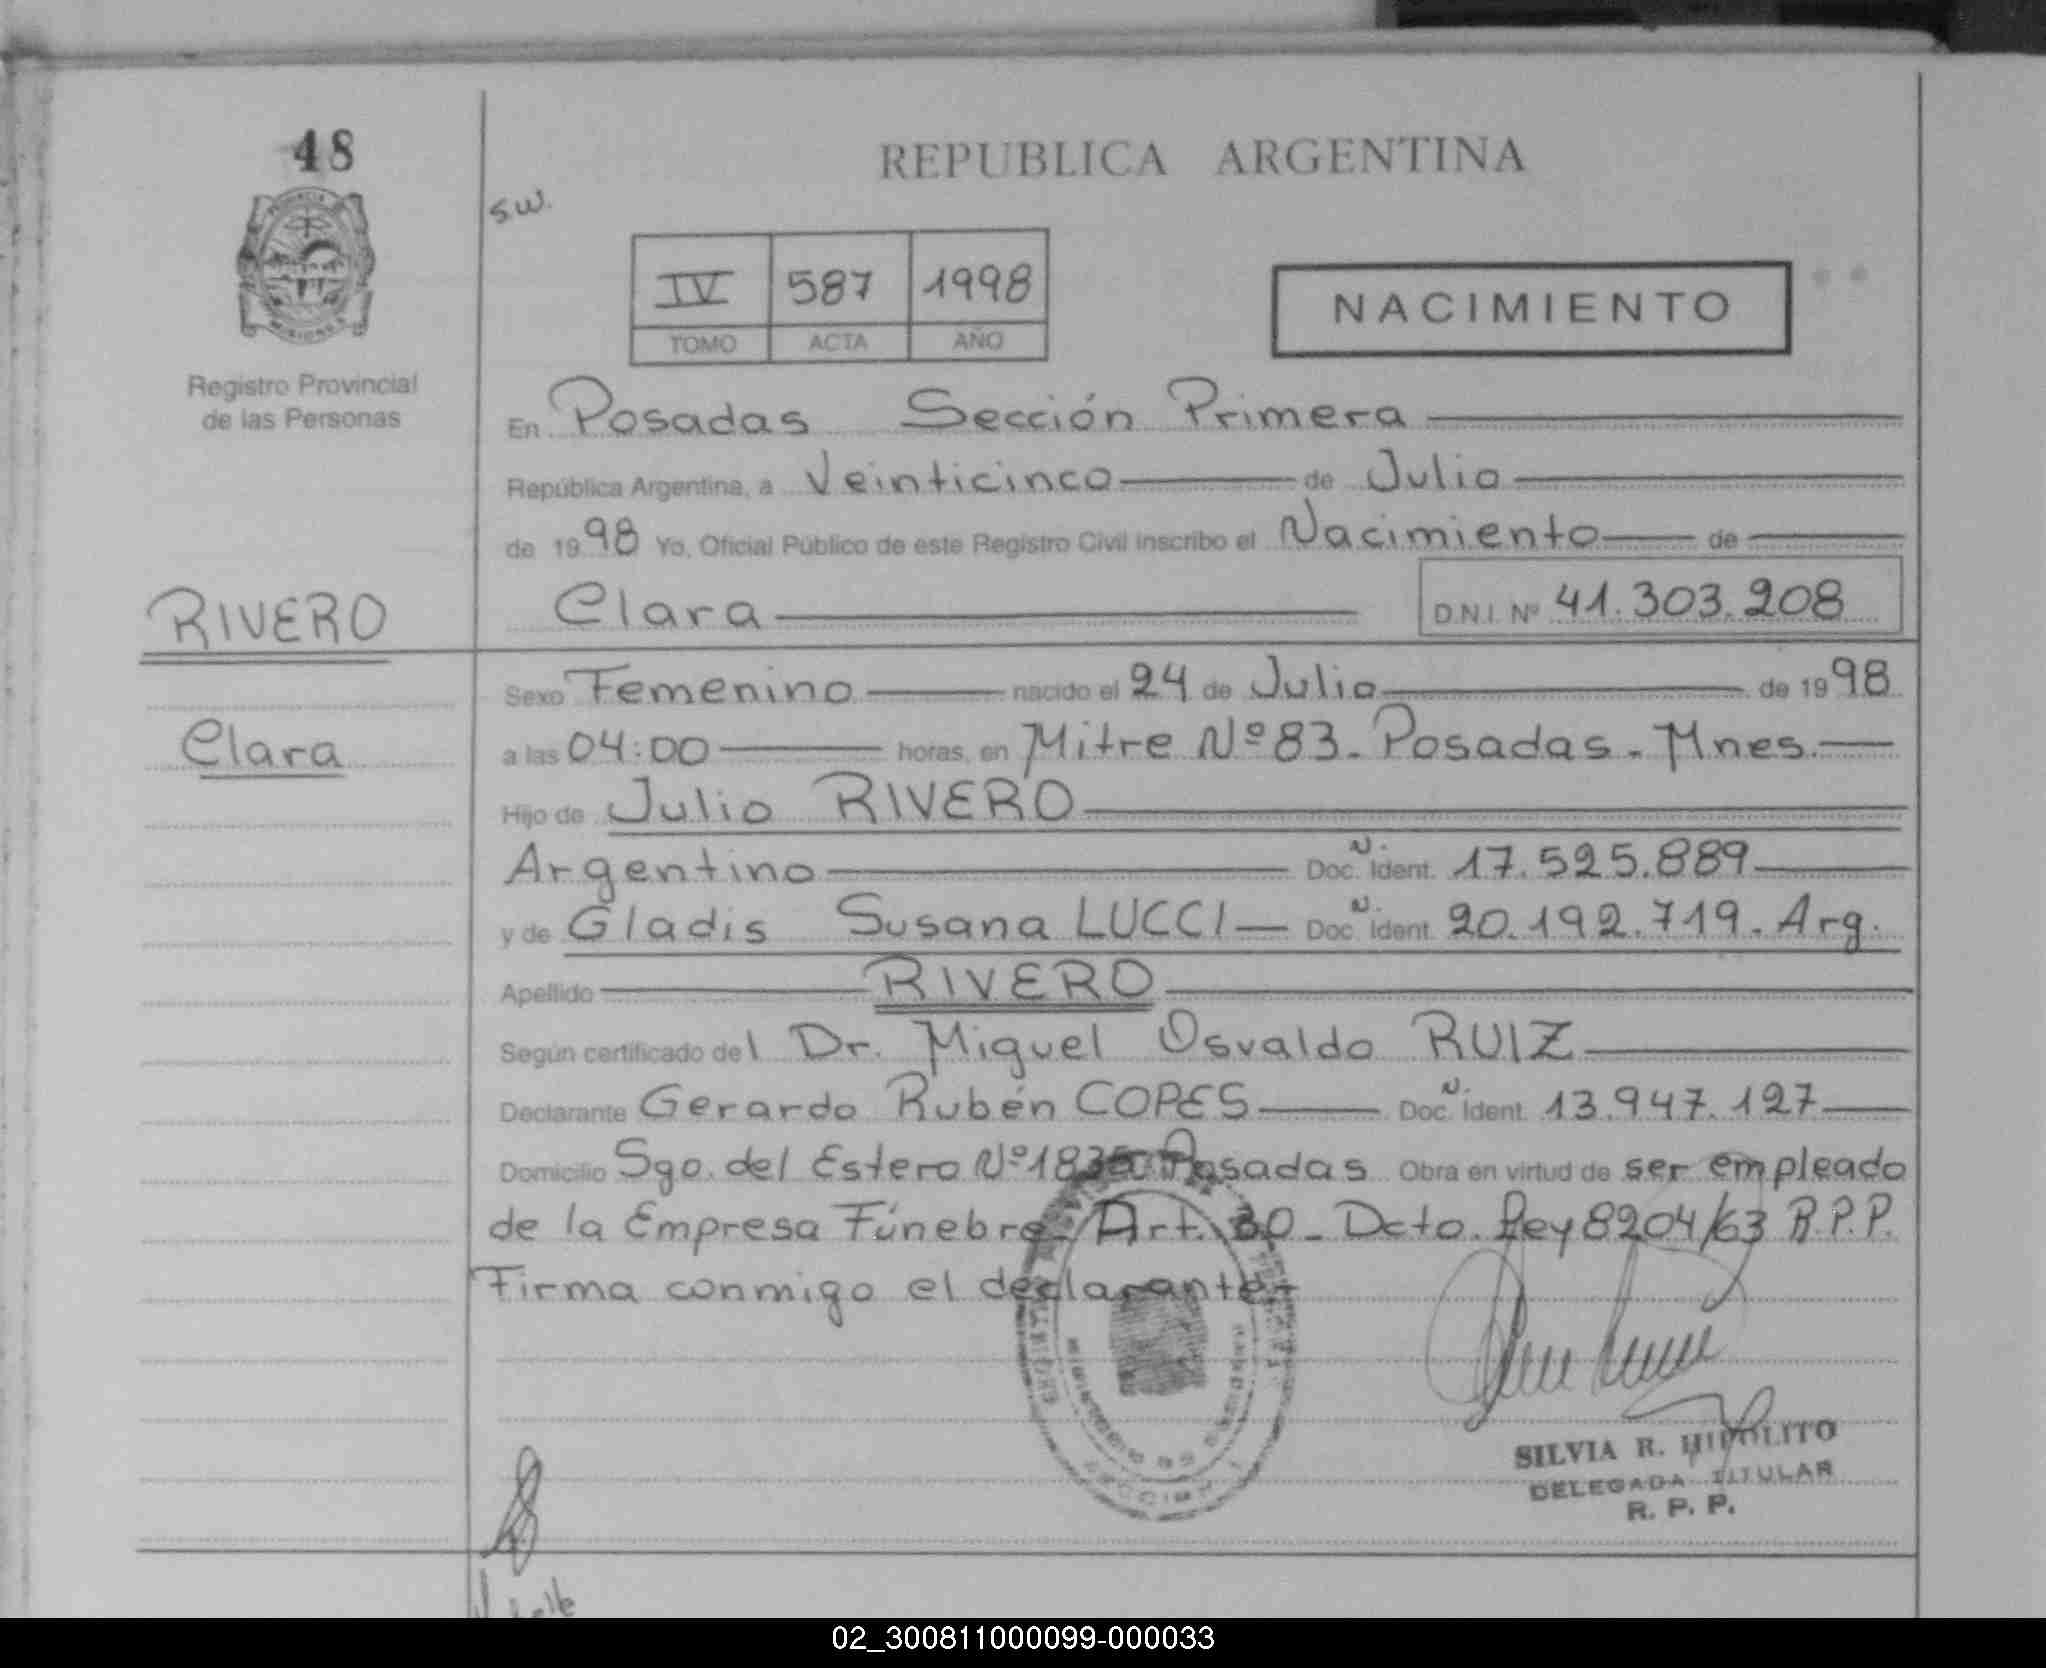 48
REPUBLICA ARGENTINA
s.w.
IV 587 1998
TOMO ACTA AÑO
NACIMIENTO
Registro Provincial
de las Personas
En Posadas Sección Primera
República Argentina, a Veinticinco de Julio
de 1998 Yo, Oficial Público de este Registro Civil inscribo el Nacimiento de
RIVERO
Clara D.N.I. Nº 41.303.208
Sexo Femenino nacido el 24 de Julio de 1998
Clara
a las 04:00 horas, en Mitre Nº 83 - Posadas - Mnes.
Hijo de Julio RIVERO
Argentino Doc. N. Ident. 17.525.889
y de Gladis Susana LUCCI Doc. N. Ident. 20.192.719. Arg.
Apellido RIVERO
Según certificado del Dr. Miguel Osvaldo RUIZ
Declarante Gerardo Rubén COPES Doc. N. Ident. 13.947.127
Domicilio Sgo. del Estero Posadas Obra en virtud de ser empleado
de la Empresa Fúnebre - Art. 30 - Dcto. Ley 8204/63 R.P.P.
Firma conmigo el declarante
SILVIA R. HIPOLITO
DELEGADA TITULAR
R. P. P.
02_300811000099-000033